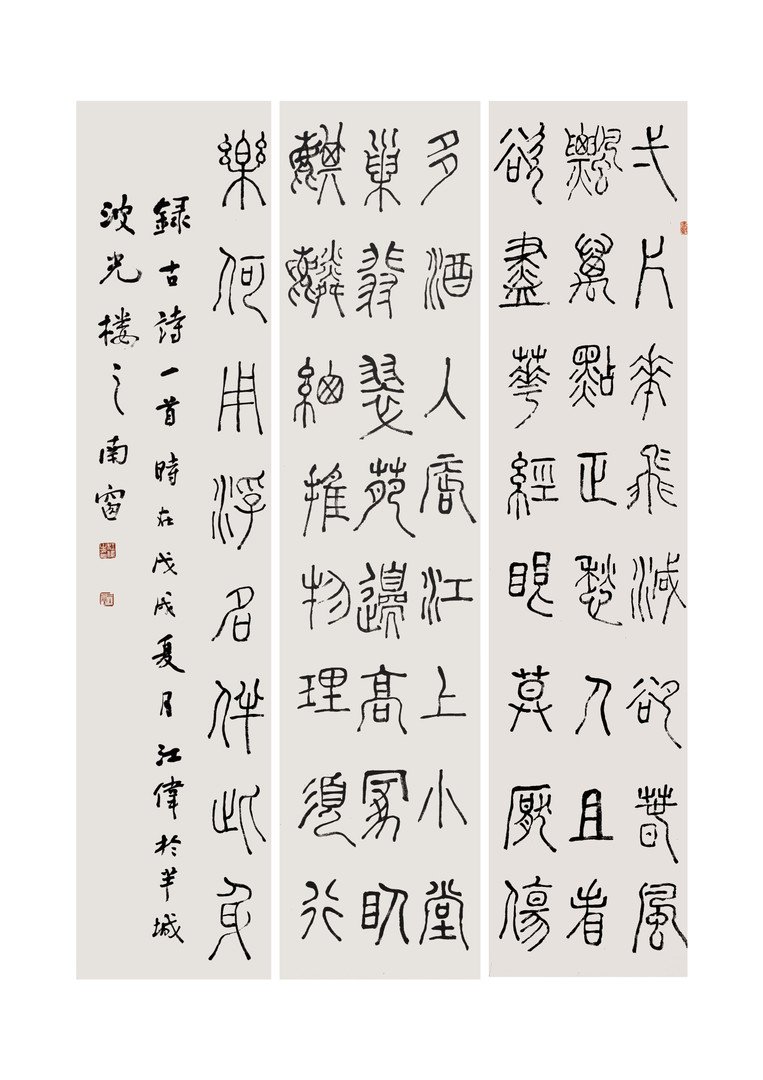 弌片花飛減卻春風
飄萬點正愁人且看
欲盡華經眼莫厭傷
多酒入唇江上小堂
巢翡翠苑邊高冢臥
麒麟細推物理須行
樂何用浮名伴此身
録古詩一首時在戊戌夏月江偉於羊城
波光樓之南窗